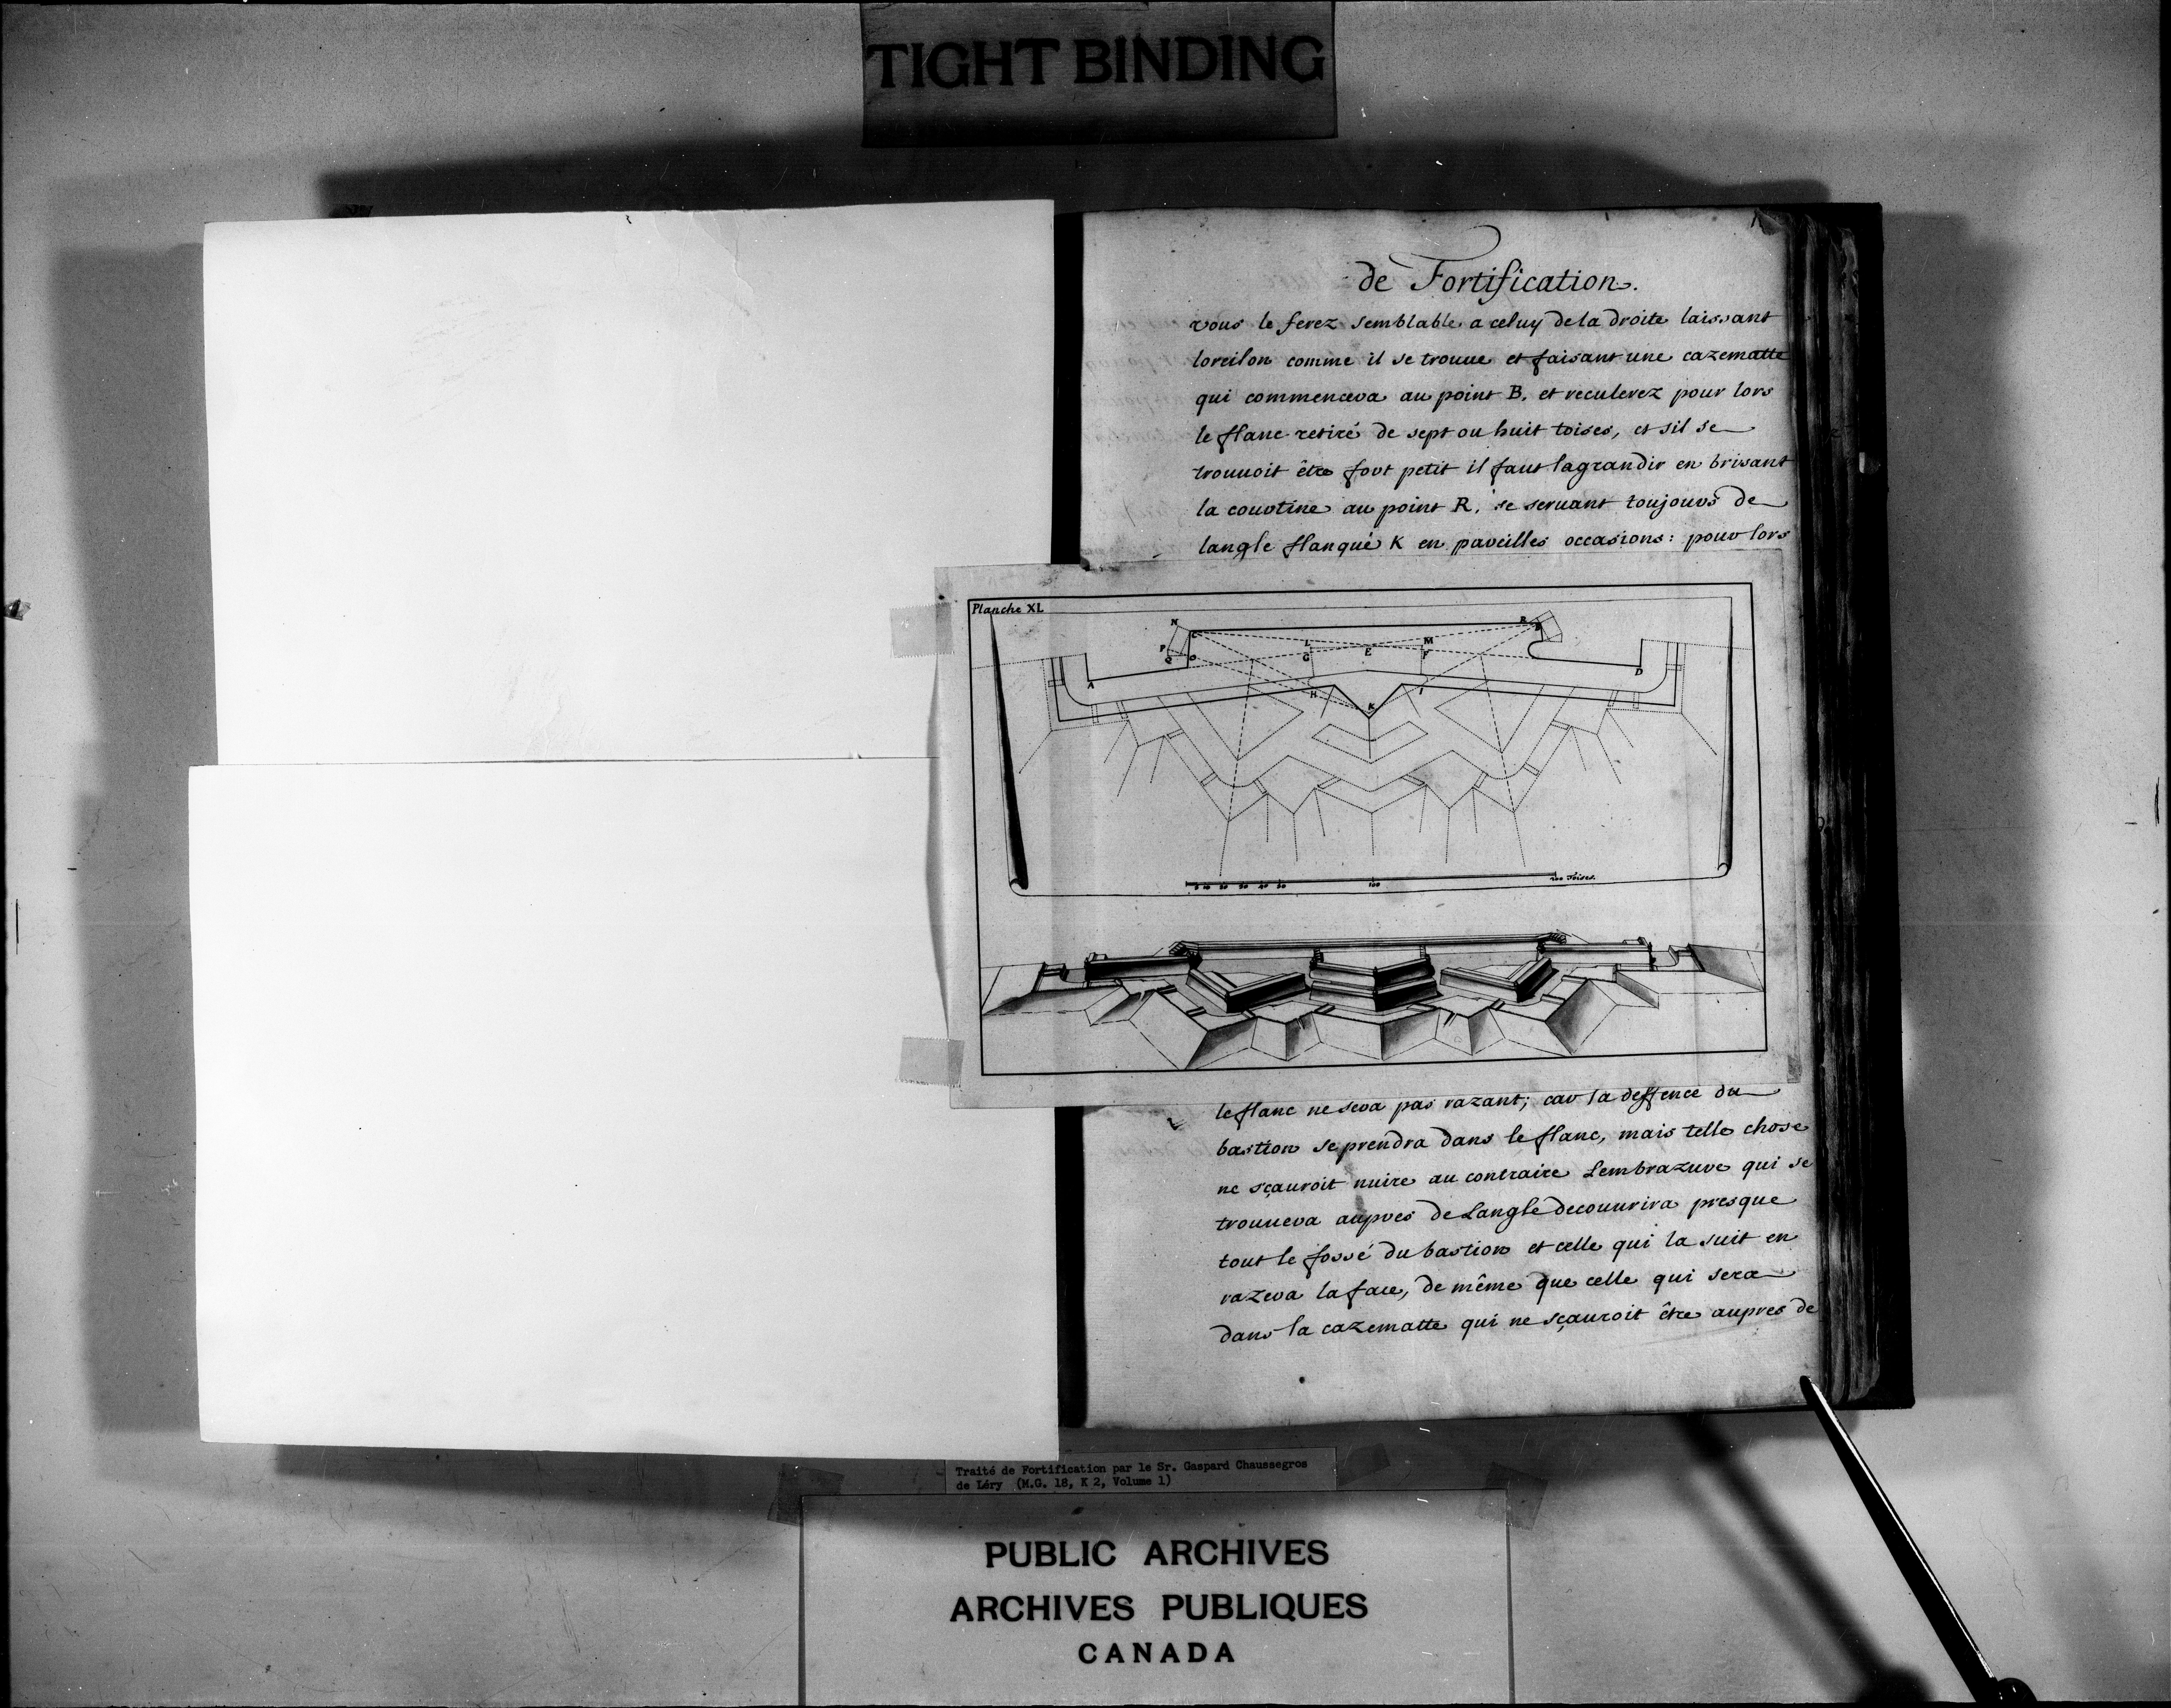 TIGHT BINDING
de Fortification.
vous le ferez semblable a celuy de la droite laissant
loreilon comme il se trouue et faisant une cazematte
qui commencera au point B, et reculerez pour lors
le flanc retiré de sept ou huit toises, et sil se
trouuoit être fort petit il faut lagrandir en brisant
la courtine au point R, se seruant toujours de
langle flanqué K en pareilles occasions: pour lors
Planche XL
N C R B
P Q O L G E M F
A H K I D
10 20 30 40 50 100 200 Toises.
le flanc ne sera pas razant; car la deffence du
bastion se prendra dans le flanc, mais telle chose
ne sçauroit nuire au contraire Lembrazure qui se
trouuera aupres de Langle decouurira presque
tout le fossé du bastion et celle qui la suit en
razera la face, de même que celle qui sera
dans la cazematte qui ne sçauroit être aupres de
Traité de Fortification par le Sr. Gaspard Chaussegros
de Léry (M.G. 18, K 2, Volume 1)
PUBLIC ARCHIVES
ARCHIVES PUBLIQUES
CANADA